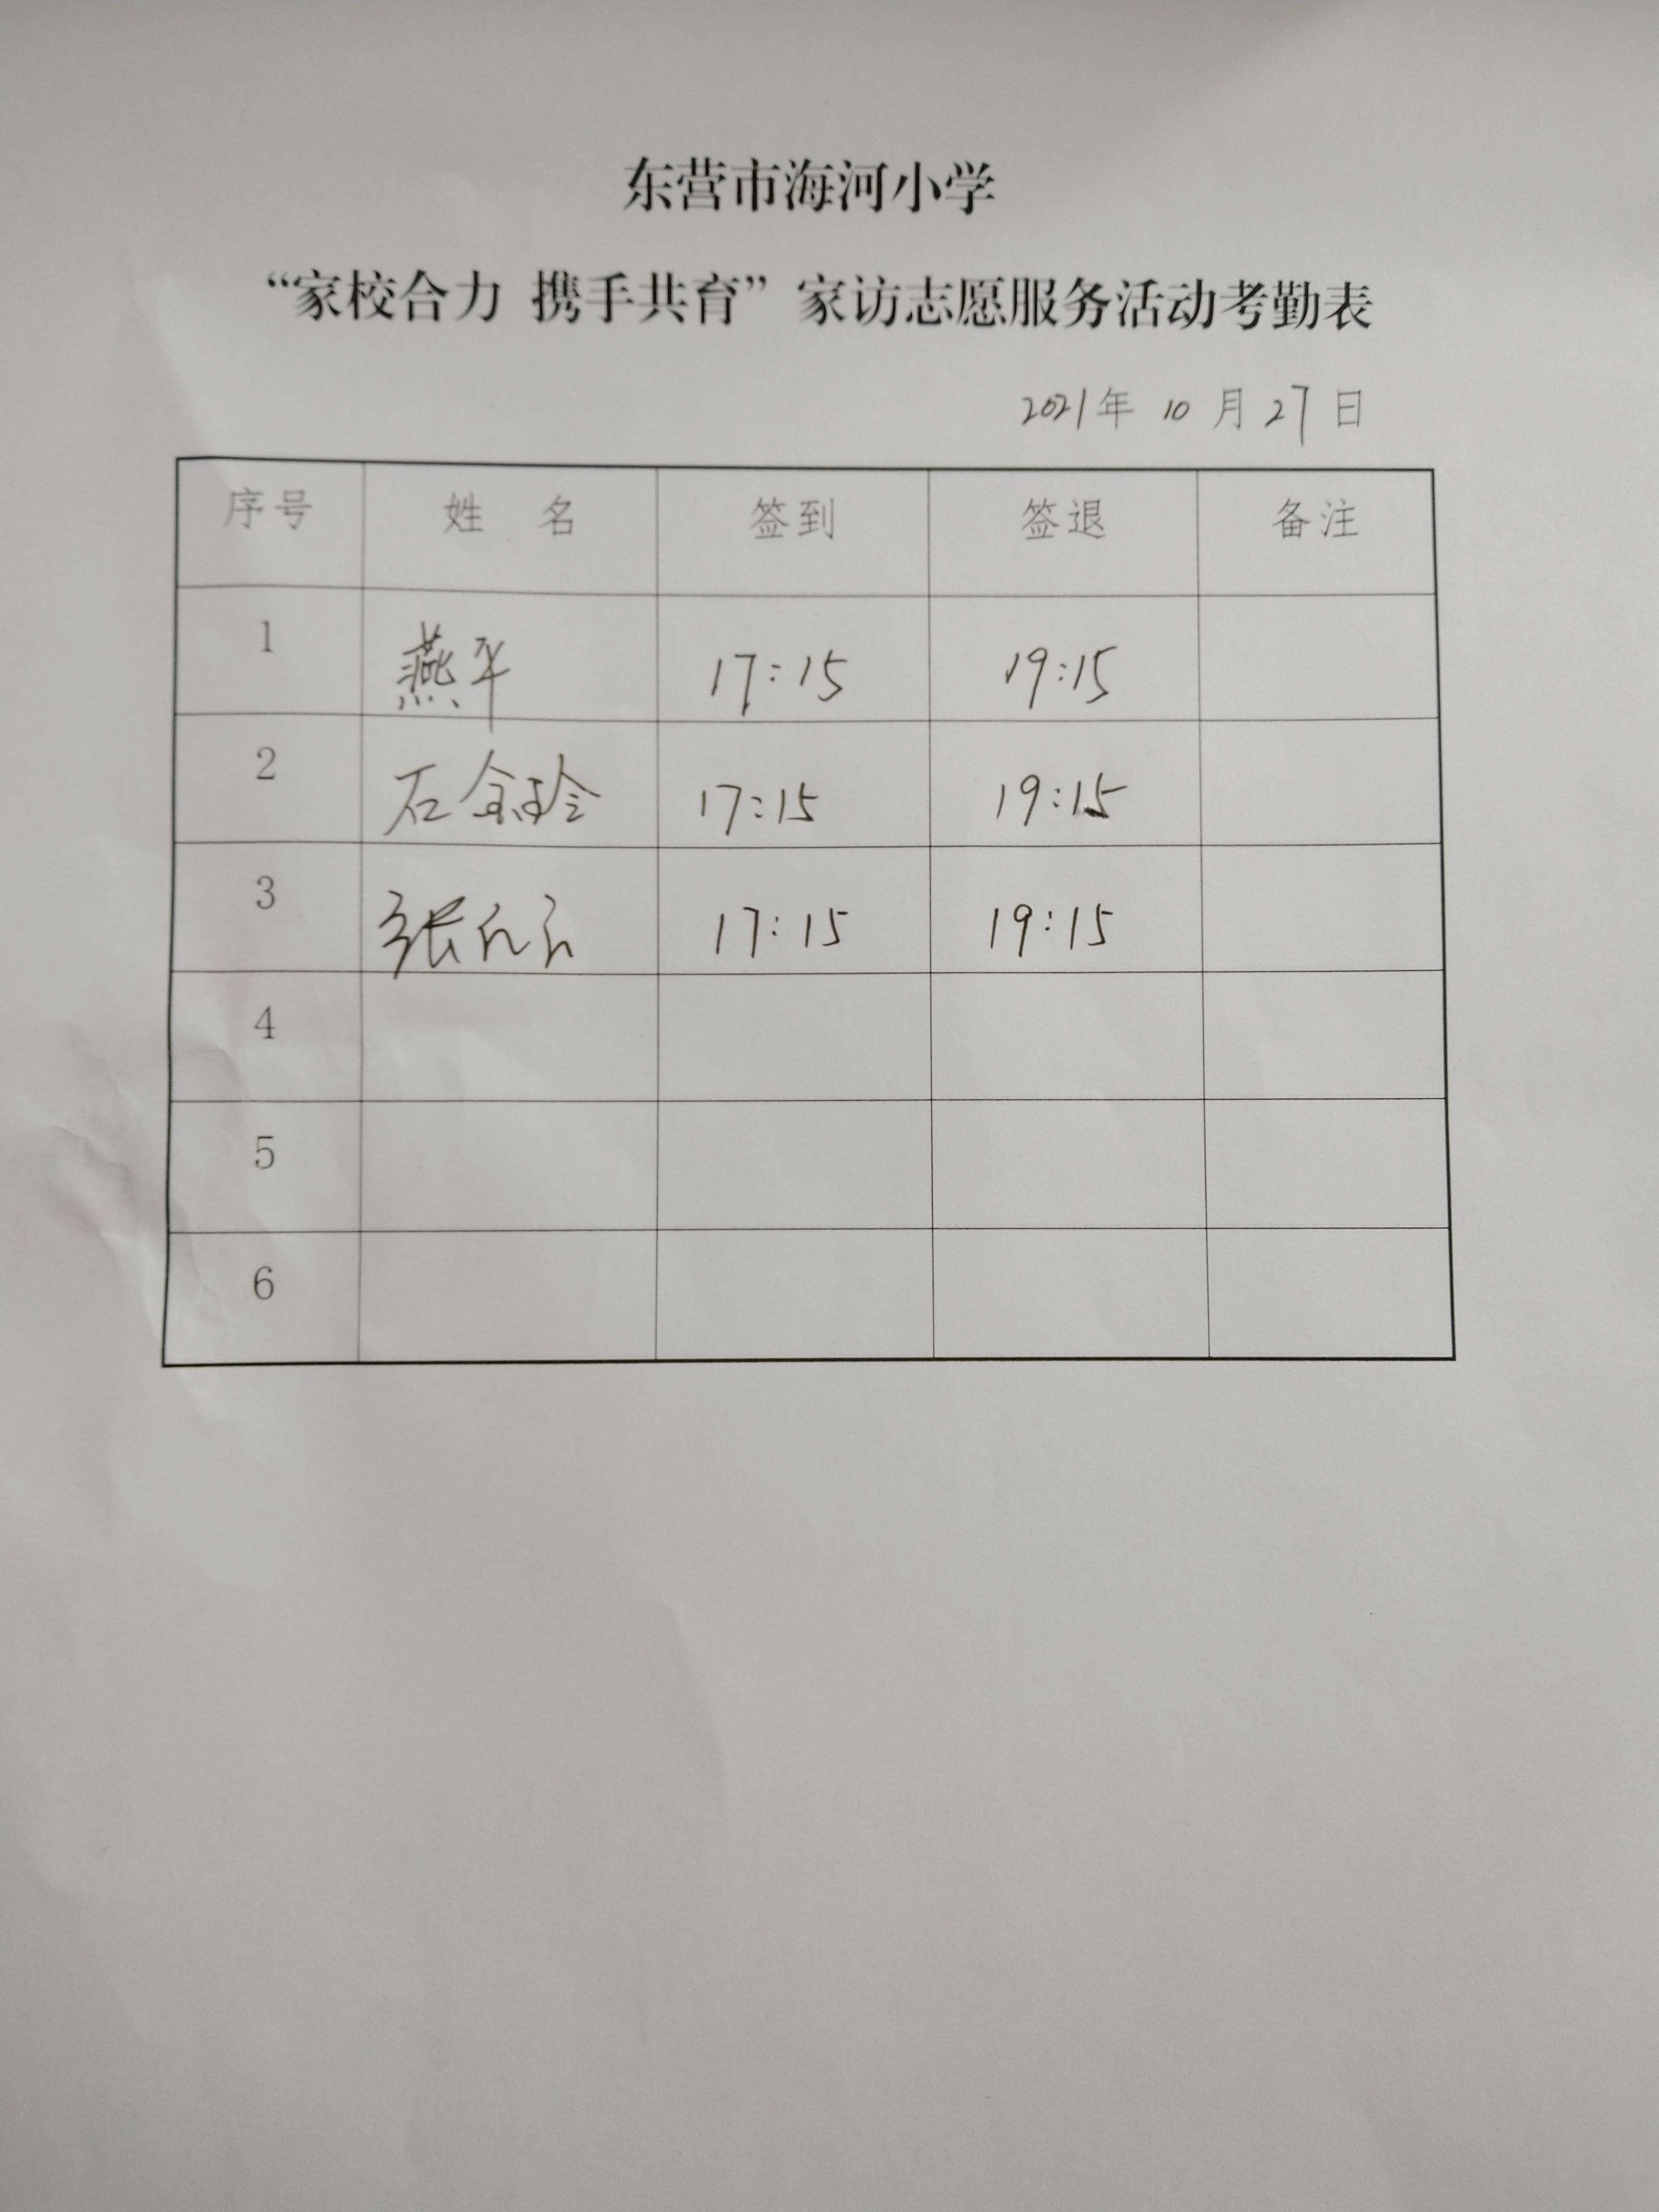 东营市海河小学
“家校合力 携手共育”家访志愿服务活动考勤表
2021年 10 月 27 日
序号 姓 名 签到 签退 备注
1 燕平 17:15 19:15
2 石玲 17:15 19:15
3 张 17:15 19:15
4
5
6